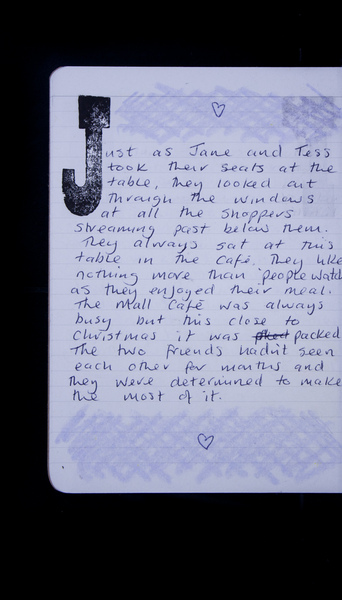 Just as Jane and Tess
took their seats at the
table, they looked out
through the windows
at all the shoppers
streaming past below them.
They always sat at this
table in the Café. They like
nothing more than 'people watch
as they enjoyed their meal.
The Mall Café was always
busy but this close to
Christmas it was packed
The two friends hadn't seen
each other for months and
they were determined to make
the most of it.